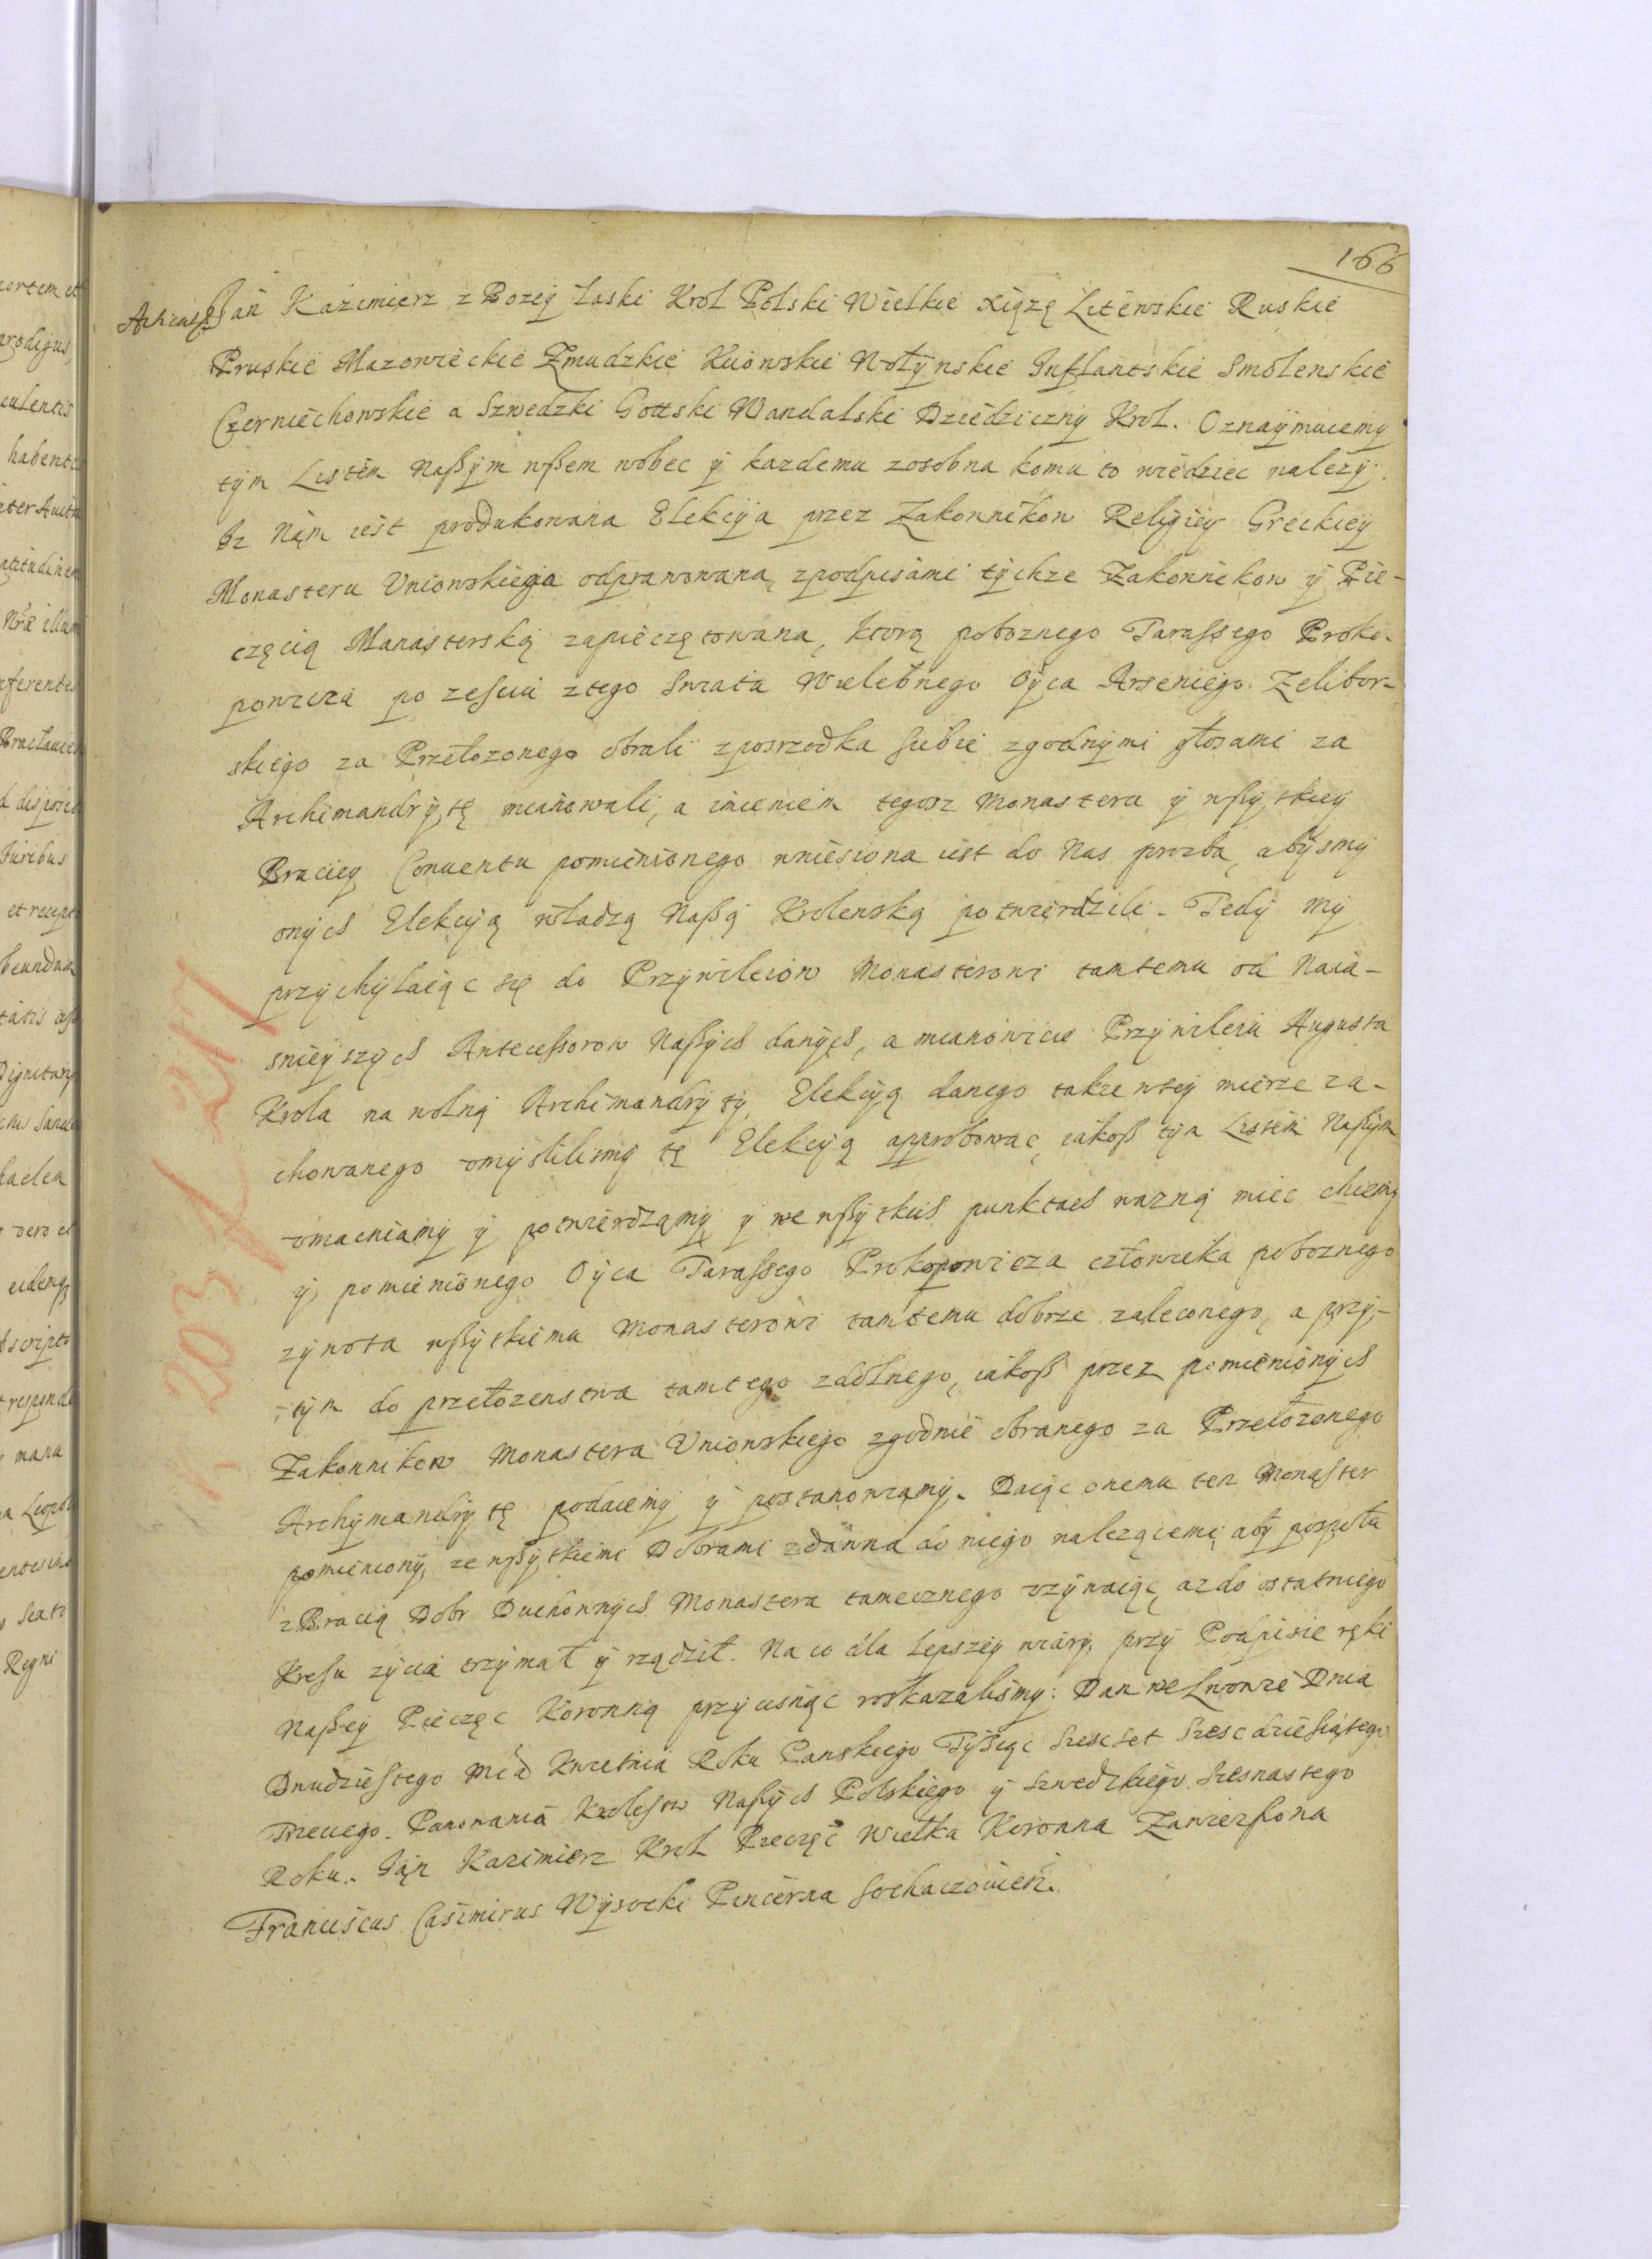 166
Jan Kazimierz z Bozey Łaski Krol Polski Wielkie Xiązę Litewskie Ruskie
Pruskie Mazowieckie Zmudzkie Kiiowskie Wołynskie Inflantskie Smolenskie
Czerniechowskie a Szwedzki Gottski Wandalski Dziedziczny Krol. Oznaymuiemy
tym Listem Naßym wßem wobec y kazdemu zosobna komu to wiedziec nalezy.
Iz Nam iest produkowana Elekcya przez Zakonnikow Religiey Greckiey
Monasteru Uniowskiego odprawowana, zpodpisami tychze Zakonnikow y Pie-
częcią Manasterską zapieczętowana, ktorą poboznego Tarassego Proko-
powicza po zesciu z tego Swiata Wielebnego Oyca Arseniego Zelibor-
skiego za Przełozonego obrali zposrzodka siebie zgodnymi głosami za
Archimandrytę mianowali, a imieniem tegosz Monasteru y wßytkiey
Braciey Conuentu pomienionego wniesiona iest do Nas prozba, abysmy
onych Elekcyą władzą Naßą Krolewską potwierdzili. Tedy my
przychylaiąc się do Przywileiow Monasterowi tamtemu od Naia-
snieyszych Antecessorow Naßych danych, a mianowicie Przywileiu Augusta
Krola na wolną Archimandryty Elekcyą danego takze w tey mierze za-
chowanego umyslilismy tę Elekcyą approbowac, iakoß tym Listem Naßym
umacniamy y potwierdzamy y we wßytkich punktach wazną miec chcemy
y pomienionego Oyca Tarassego Prokopowicza człowieka poboznego
zywota wßytkiemu Monasterowi tamtemu dobrze zaleconego, a przy-
tym do przełozenstwa tamtego zdolnego, iakoß przez pomienionych
Zakonnikow Monastera Uniowskiego zgodnie obranego za Przełozonego
Archymandrytę podaiemy y postanowiamy. Daiąc onemu ten Monaster
pomieniony, ze wßytkiemi Dobrami zdawna do niego nalezącemi, aby pospołu
z Bracią Dobr Duchownych Monastera tamecznego uzywaiąc, az do ostatniego
Kresu zycia trzymał y rządził. Na co dla lepszey wiary przy Podpisie ręki
Naßey Pieczęc Koronną przycisnąc roskazalismy: Dan we Lwowie Dnia
Dwudziestego Mca Kwietnia Roku Panskiego Tysiąc Szescset Szescdziesiątego
Trzeciego. Panowania Krolestw Naßych Polskiego y Szwedzkiego Szesnastego
Roku. Jan Kazimierz Krol Pieczęc Wielka Koronna Zawießona
Franciscus Casimirus Wysocki Pincerna Sochaczouien.